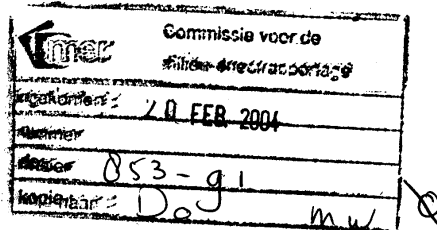 mer
Commissie voor de
milieu-effectrapportage
ingekomen : 20 FEB. 2004
nummer
dossier 853-91
kopie naar : Do mw